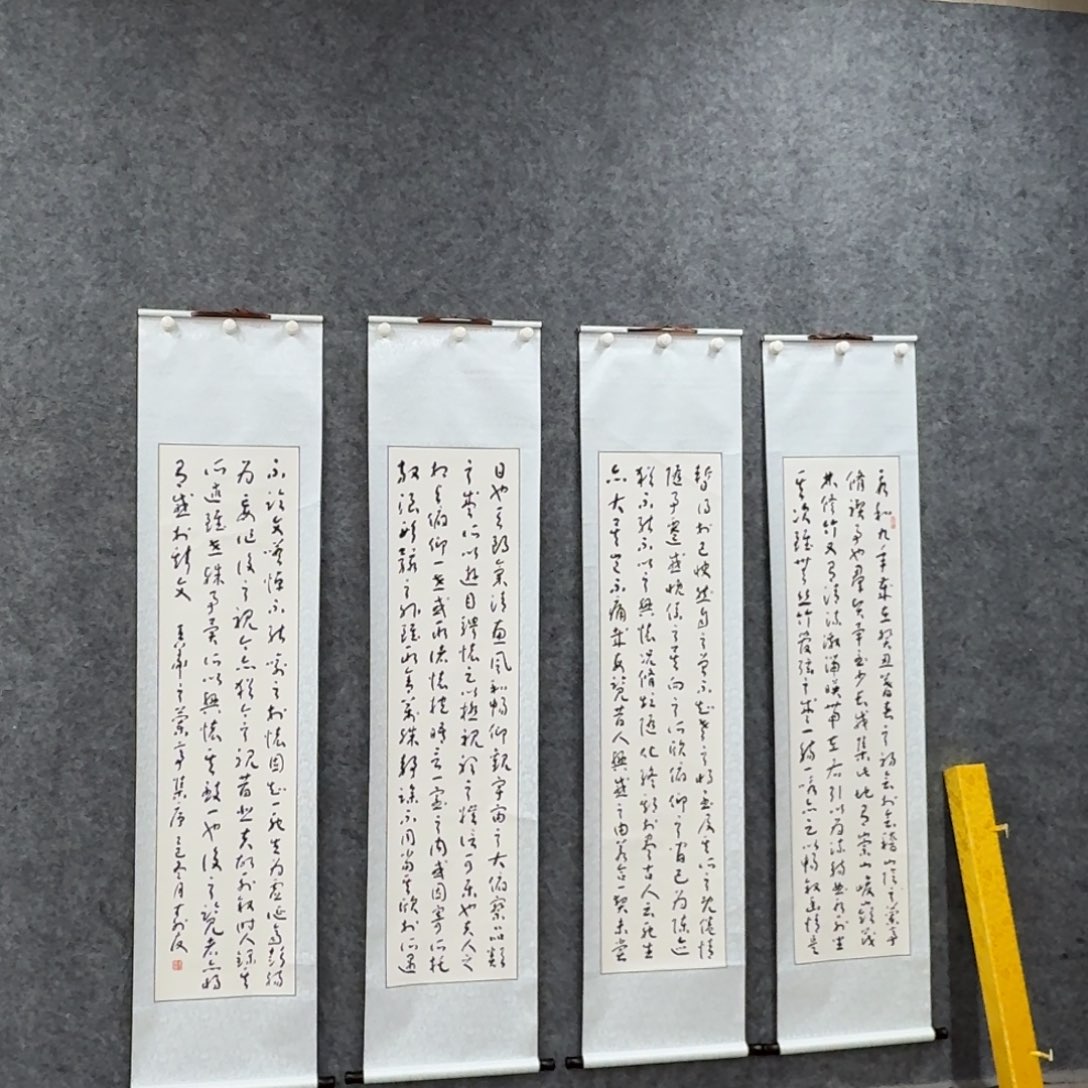 永和九年歲在癸丑暮春之初會於會稽山陰之蘭亭
脩禊事也羣賢畢至少長咸集此地有崇山峻嶺茂
林修竹又有清流激湍映帶左右引以為流觴曲水列坐
其次雖無絲竹管弦之盛一觴一詠亦足以暢敘幽情是
日也天朗氣清惠風和暢仰觀宇宙之大俯察品類
之盛所以遊目騁懷足以極視聽之娛信可樂也夫人之
相與俯仰一世或取諸懷抱晤言一室之內或因寄所托
放浪形骸之外雖取舍萬殊靜躁不同當其欣於所遇
暫得於己快然自足曾不知老之將至及其所之既倦情
隨事遷感慨係之矣向之所欣俯仰之間已為陳迹
猶不能不以之興懷況脩短隨化終期於盡古人云死生
亦大矣豈不痛哉每覽昔人興感之由若合一契未嘗
不臨文嗟悼不能喻之於懷固知一死生為虛誕齊彭殤
為妄作後之視今亦猶今之視昔悲夫故列敘時人錄其
所述雖世殊事異所以興懷其致一也後之覽者亦將
有感於斯文 王羲之蘭亭集序 冬月